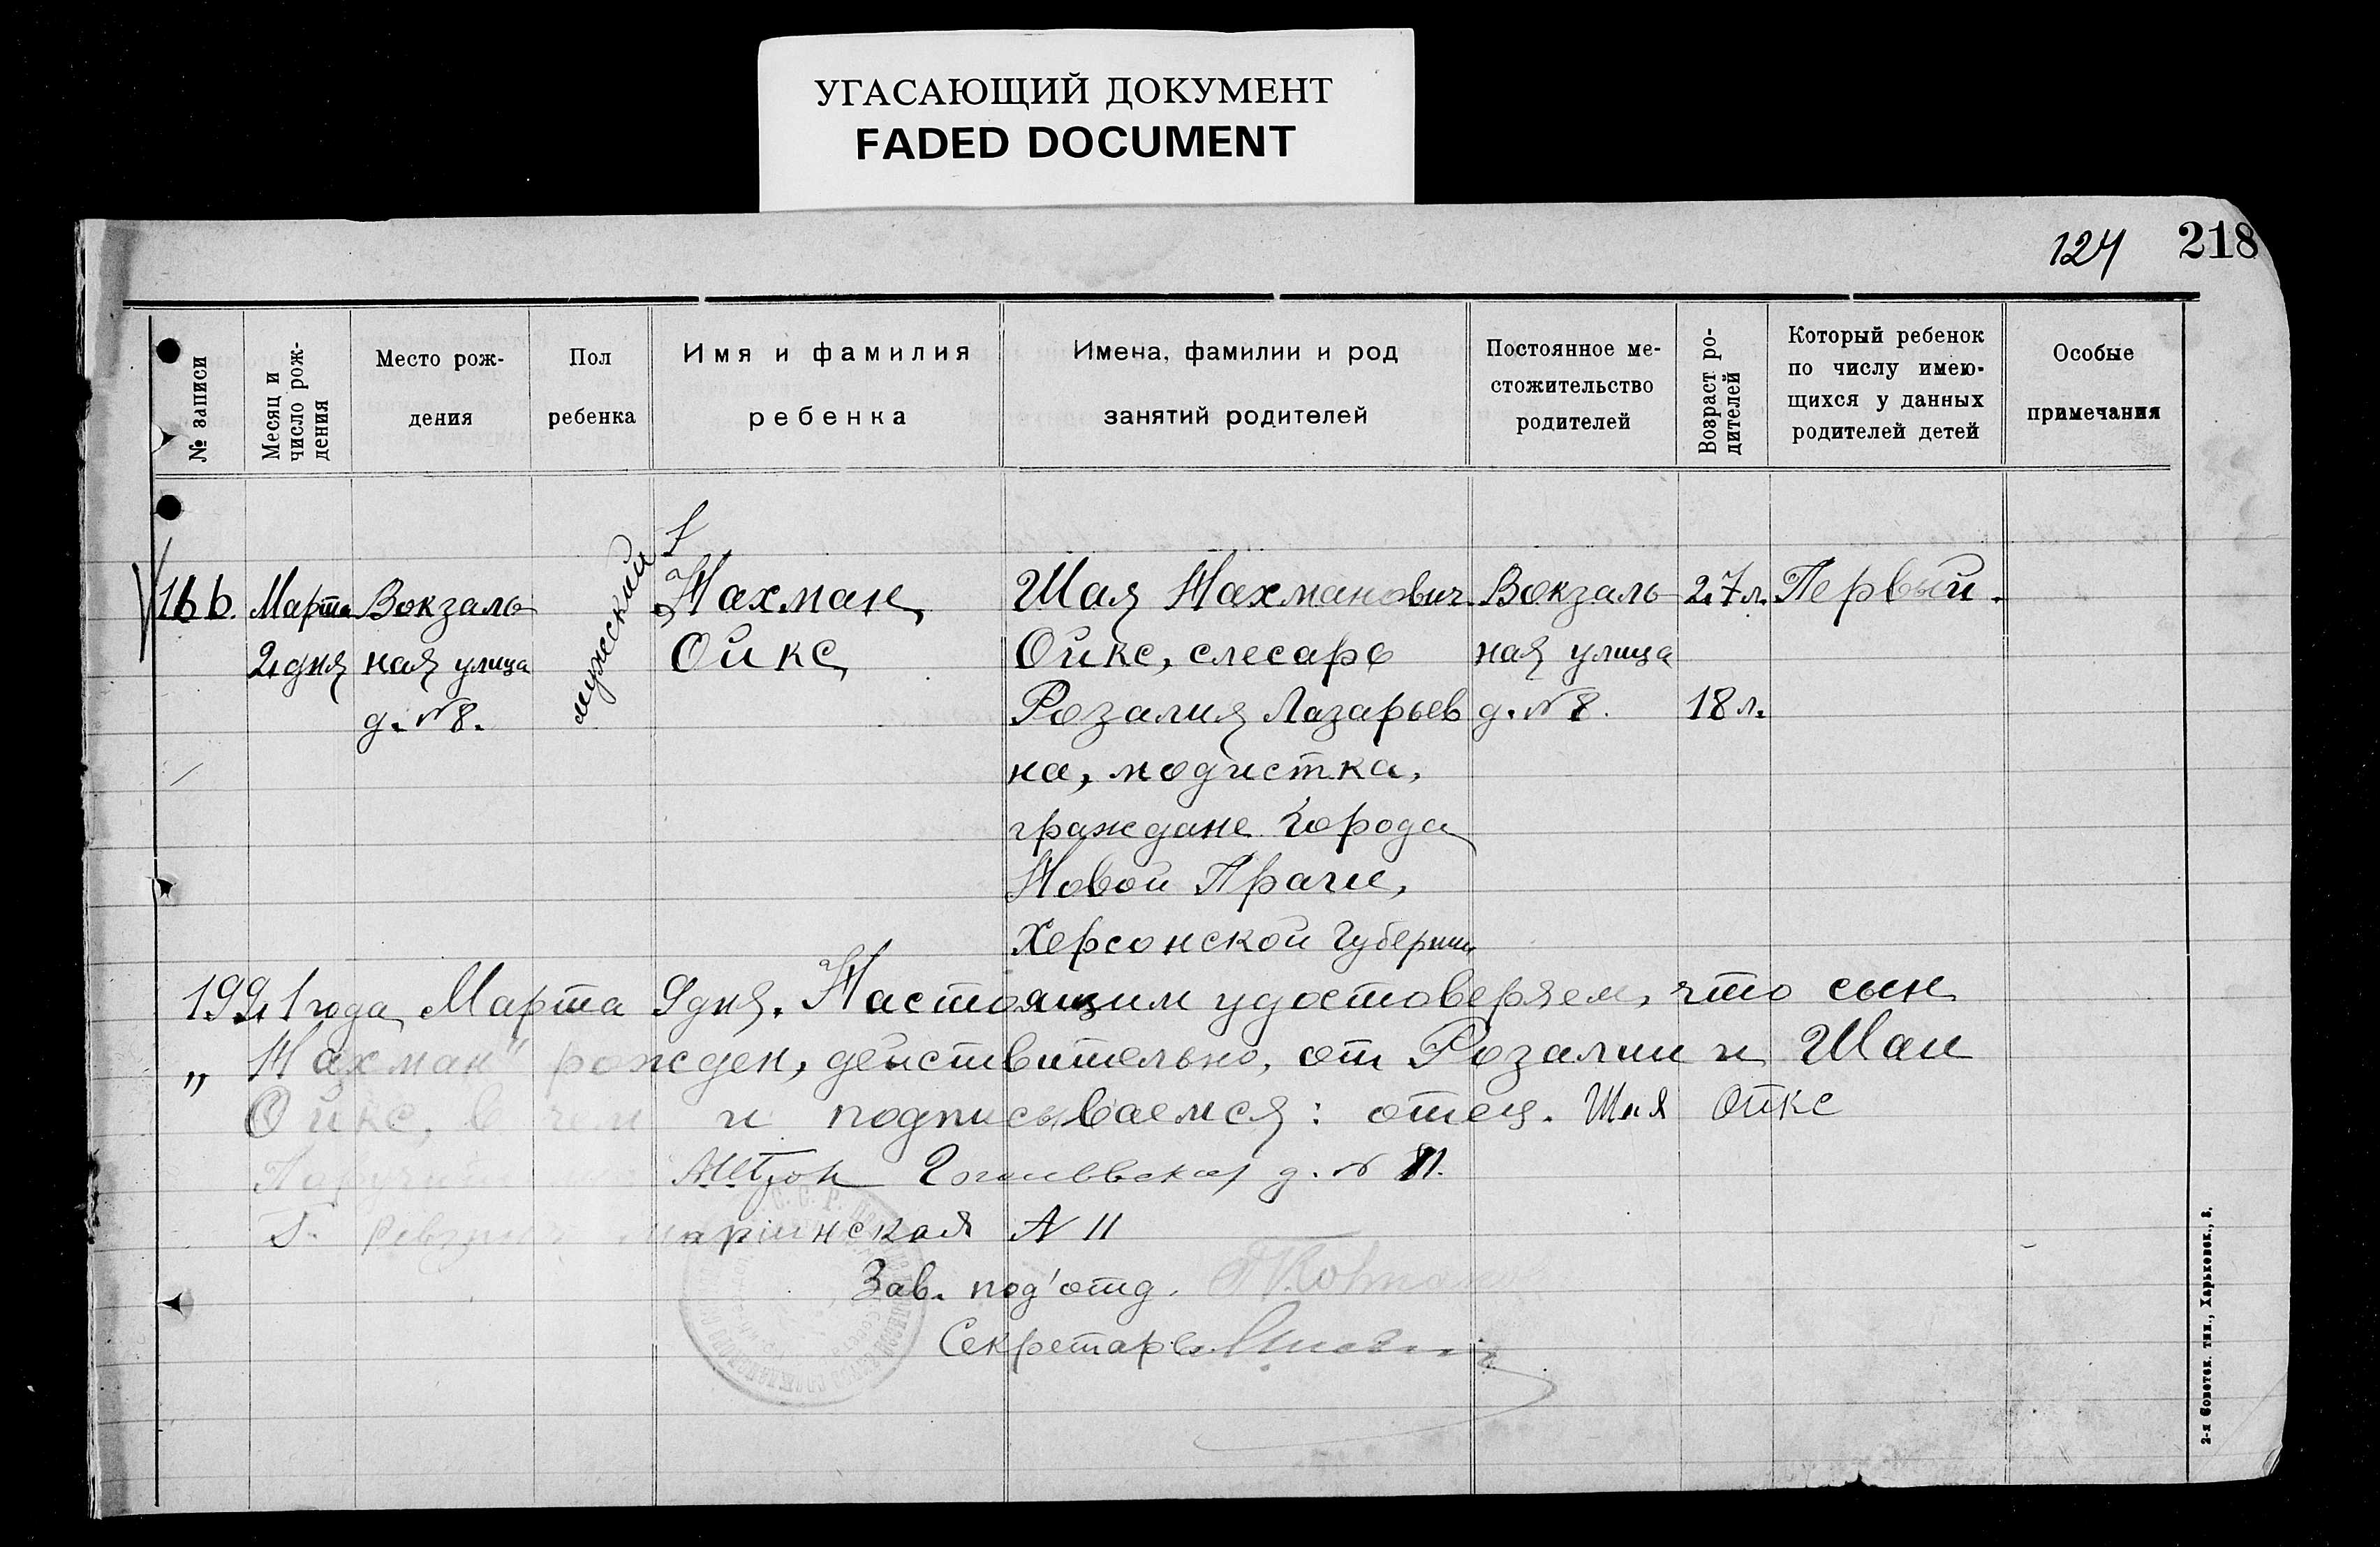 УГАСАЮЩИЙ ДОКУМЕНТ
FADED DOCUMENT
124 218
№ записи
Месяц и число рож-
дения
Место рож-
дения
Пол
ребенка
Имя и фамилия
ребенка
Имена, фамилии и род
занятий родителей
Постоянное ме-
стожительство
родителей
Возраст ро-
дителей
Который ребенок
по числу имею-
щихся у данных
родителей детей
Особые
примечания
166. Марта Вокзаль мужский Нахман Шая Нахманович Вокзаль 27 л. Первый.
2 дня ная улица Ойкс Ойкс, слесарь ная улица
д. № 8. Розалия Лазарьев д. № 8. 18 л.
на, модистка,
граждане города
Новой Праги,
Херсонской губернии
1921 года Марта 9 дня. Настоящим удостоверяем, что сын
„Нахман" рожден, действительно, от Розалии и Шаи
Ойкс, в чем и подписываемся: отец. Шая Ойкс
д. №
Мариинская № 11
Зав. под'отд.
Секретарь
2-я Советск. тип., Харьковск., 8.